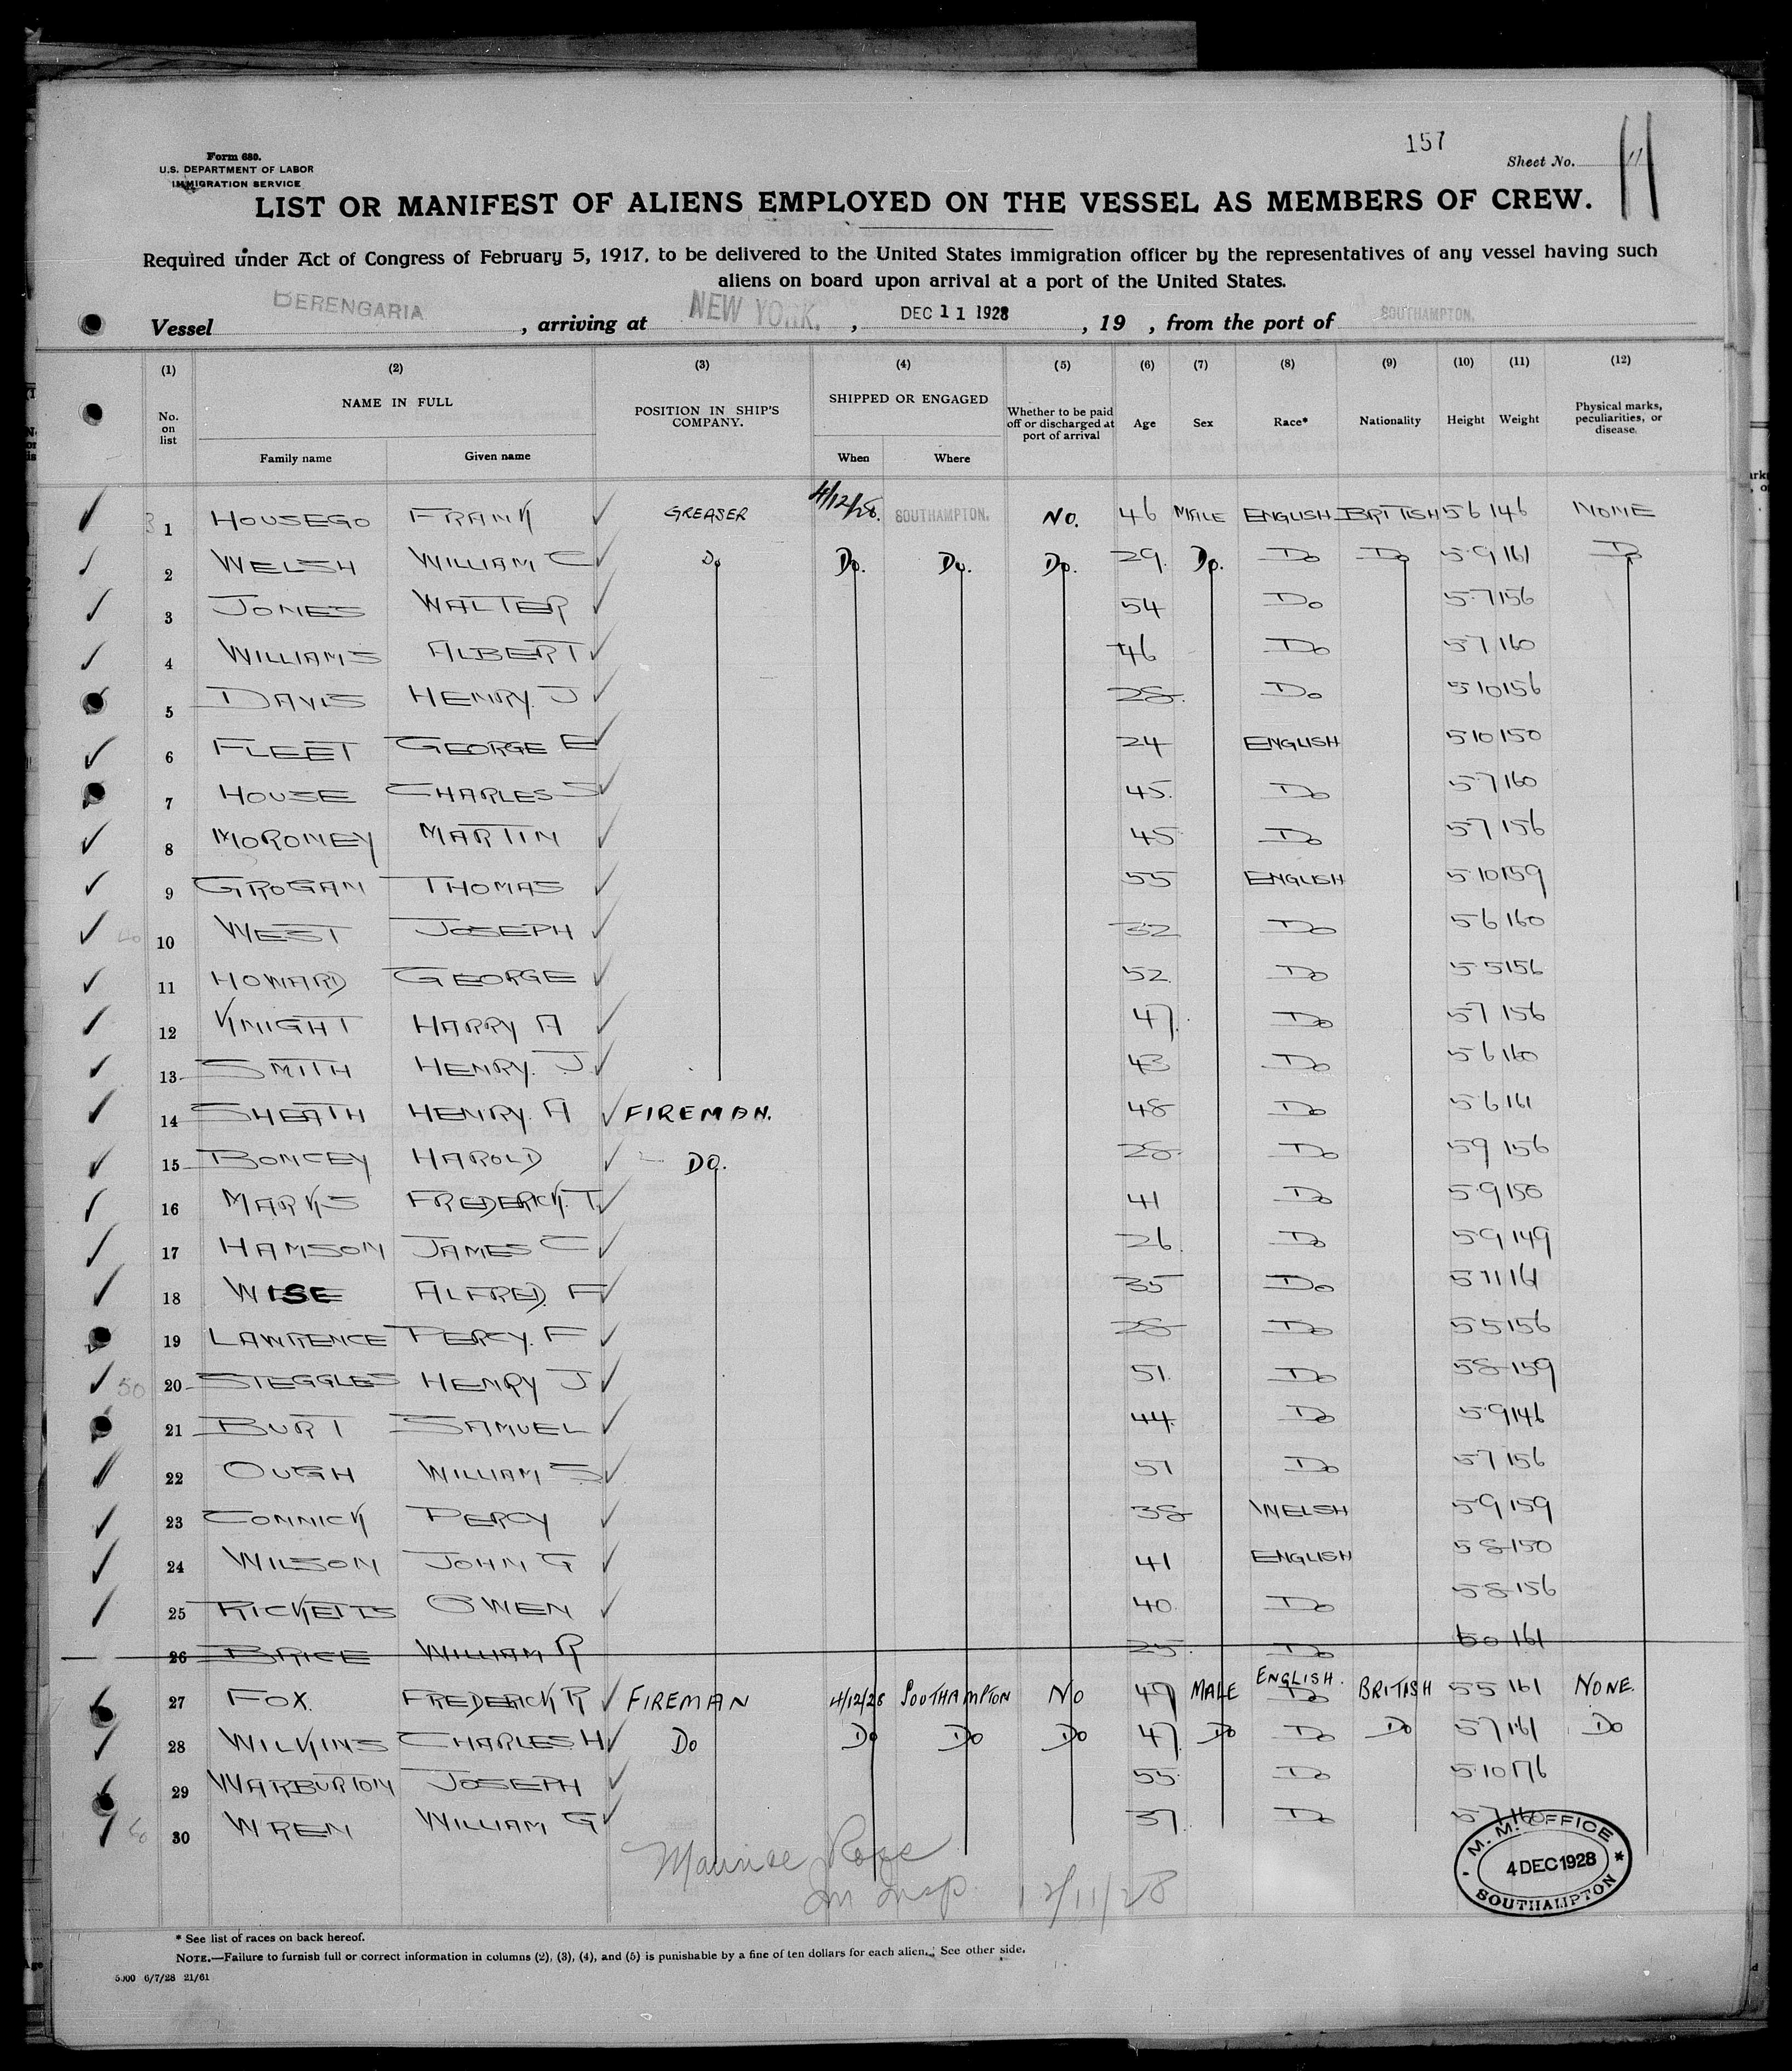 157
Form 680.
U.S. DEPARTMENT OF LABOR
IMMIGRATION SERVICE
Sheet No. 11
11
LIST OR MANIFEST OF ALIENS EMPLOYED ON THE VESSEL AS MEMBERS OF CREW.
Required under Act of Congress of February 5, 1917, to be delivered to the United States immigration officer by the representatives of any vessel having such
aliens on board upon arrival at a port of the United States.
Vessel BERENGARIA, arriving at NEW YORK, DEC 11 1928, 19 , from the port of SOUTHAMPTON.
(1) (2) (3) (4) (5) (6) (7) (8) (9) (10) (11) (12)
No. on list NAME IN FULL POSITION IN SHIP'S COMPANY. SHIPPED OR ENGAGED Whether to be paid off or discharged at port of arrival Age Sex Race* Nationality Height Weight Physical marks, peculiarities, or disease.
Family name Given name When Where
1 HOUSEGO FRANK GREASER 4/12/28. SOUTHAMPTON. NO. 46 MALE ENGLISH BRITISH 5 6 146 NONE
2 WELSH WILLIAM C Do Do. Do. Do. 29. Do. Do Do 5 9 161 Do
3 JONES WALTER 54 Do 5 7 156
4 WILLIAMS ALBERT 46 Do 5 7 160
5 DAVIS HENRY. J 28. Do 5 10 156
6 FLEET GEORGE E 24 ENGLISH 5 10 150
7 HOUSE CHARLES S 45. Do 5 7 160
8 MORONEY MARTIN 45 Do 5 7 156
9 GROGAN THOMAS 55 ENGLISH 5 10 159
10 WEST JOSEPH 32 Do 5 6 160
11 HOWARD GEORGE 52 Do 5 5 156
12 KNIGHT HARRY A 47. Do 5 7 156
13 SMITH HENRY. J. 43 Do 5 6 160
14 SHEATH HENRY. A FIREMAN. 48 Do 5 6 161
15 BONCEY HAROLD DO. 28. Do 5 9 156
16 MARKS FREDERICK. T. 41 Do 5 9 150
17 HAMSON JAMES C 26. Do 5 9 149
18 WISE ALFRED. F 35 Do 5 11 161
19 LAWRENCE PERCY. F 28 Do 5 5 156
20 STEGGLES HENRY J 51. Do 5 8 159
50
21 BURT SAMUEL 44. Do 5 9 146
22 OUGH WILLIAM S 51 Do 5 7 156
23 CONNICK PERCY 38 WELSH 5 9 159
24 WILSON JOHN G 41 ENGLISH 5 8 150
25 RICKETTS OWEN 40. Do 5 8 156
26 BRICE WILLIAM R 25. Do 6 0 161
27 FOX. FREDERICK R FIREMAN 4/12/28 SOUTHAMPTON NO 49 MALE ENGLISH. Do BRITISH 5 5 161 NONE.
28 WILKINS CHARLES H Do Do Do Do 47. Do Do Do 5 7 161 Do
29 WARBURTON JOSEPH 55. Do 5 10 176
30 WREN WILLIAM G 37. Do 5 7 160
Maurice Rose
Im Insp. 12/11/28
M. M. OFFICE
4 DEC 1928
SOUTHAMPTON
* See list of races on back hereof.
NOTE.—Failure to furnish full or correct information in columns (2), (3), (4), and (5) is punishable by a fine of ten dollars for each alien. See other side.
5000 6/7/28 21/61